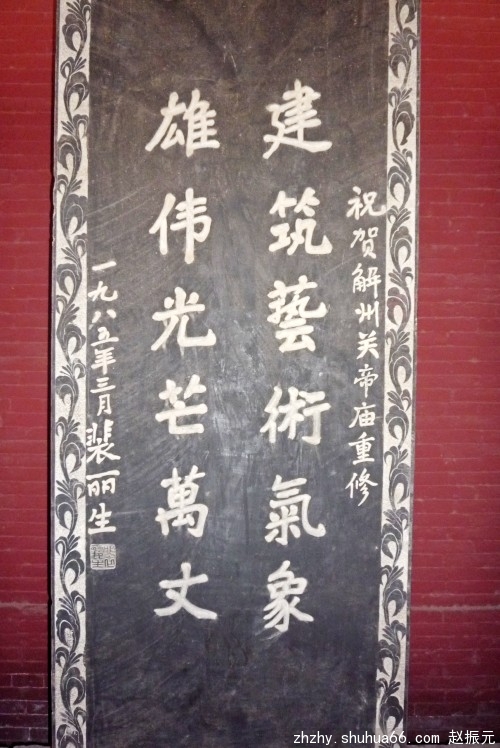 祝贺解州关帝庙重修
建筑藝術氣象
雄伟光芒萬丈
一九八五年三月
裴丽生
zhzhy.shuhua66.com 赵振元